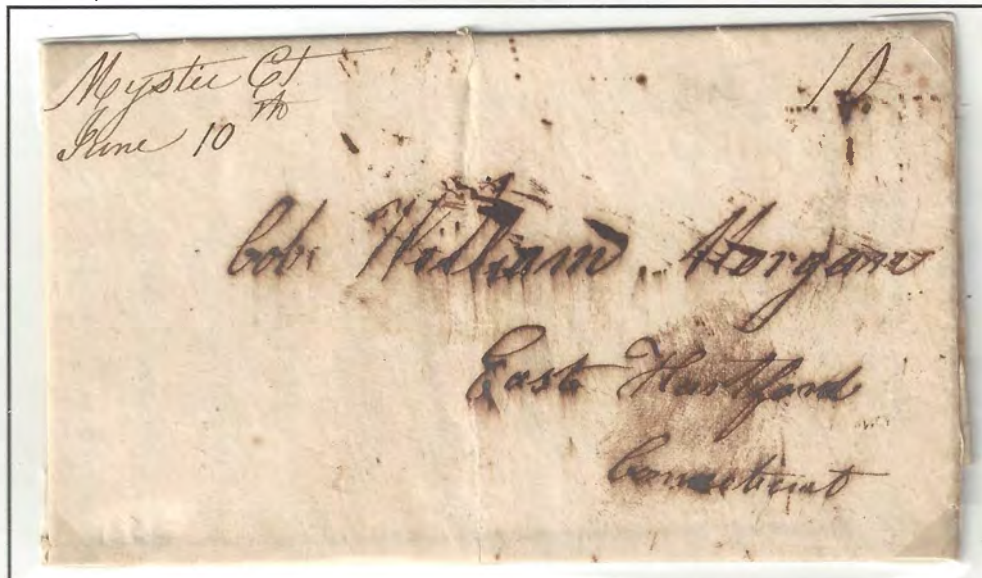 Mystic Ct
June 10th
10
Col. William Morgan
East Hartford
Connecticut